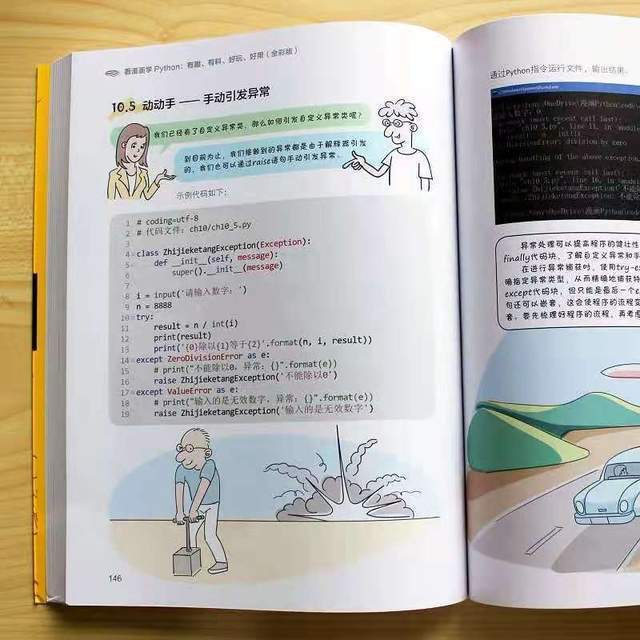 看漫画学Python：有趣、有料、好玩、好用（全彩版）
10.5 动动手 —— 手动引发异常
我们已经看了自定义异常类，那么如何引发自定义异常类呢？
到目前为止，我们接触到的异常都是由于解释器引发
的，我们也可以通过raise语句手动引发异常。
示例代码如下：
1 # coding=utf-8
2 # 代码文件：ch10/ch10_5.py
3
4 class ZhijieketangException(Exception):
5     def __init__(self, message):
6         super().__init__(message)
7
8 i = input('请输入数字：')
9 n = 8888
10 try:
11     result = n / int(i)
12     print(result)
13     print('{0}除以{1}等于{2}'.format(n, i, result))
14 except ZeroDivisionError as e:
15     # print("不能除以0，异常：{}".format(e))
16     raise ZhijieketangException('不能除以0')
17 except ValueError as e:
18     # print("输入的是无效数字，异常：{}".format(e))
19     raise ZhijieketangException('输入的是无效数字')
146
通过Python指令运行文件，输出结果。
异常处理可以提高程序的健壮性
finally代码块，了解自定义异常和手
在进行异常捕获时，使用try-ex
确指定异常类型，从而精细地捕获特
except代码块，但只能是最后一个e
句还可以嵌套，这会使程序的流程
套，要先梳理好程序的流程，再考虑